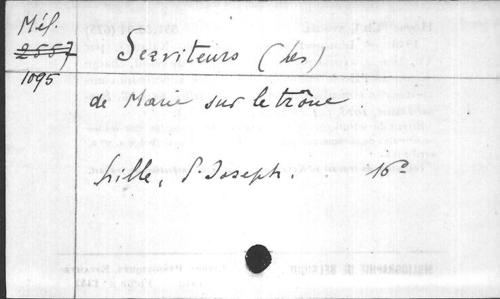 Mél.
2557
1095
Serviteurs (les)
de Marie sur le trône
Lille, S. Joseph. 16°